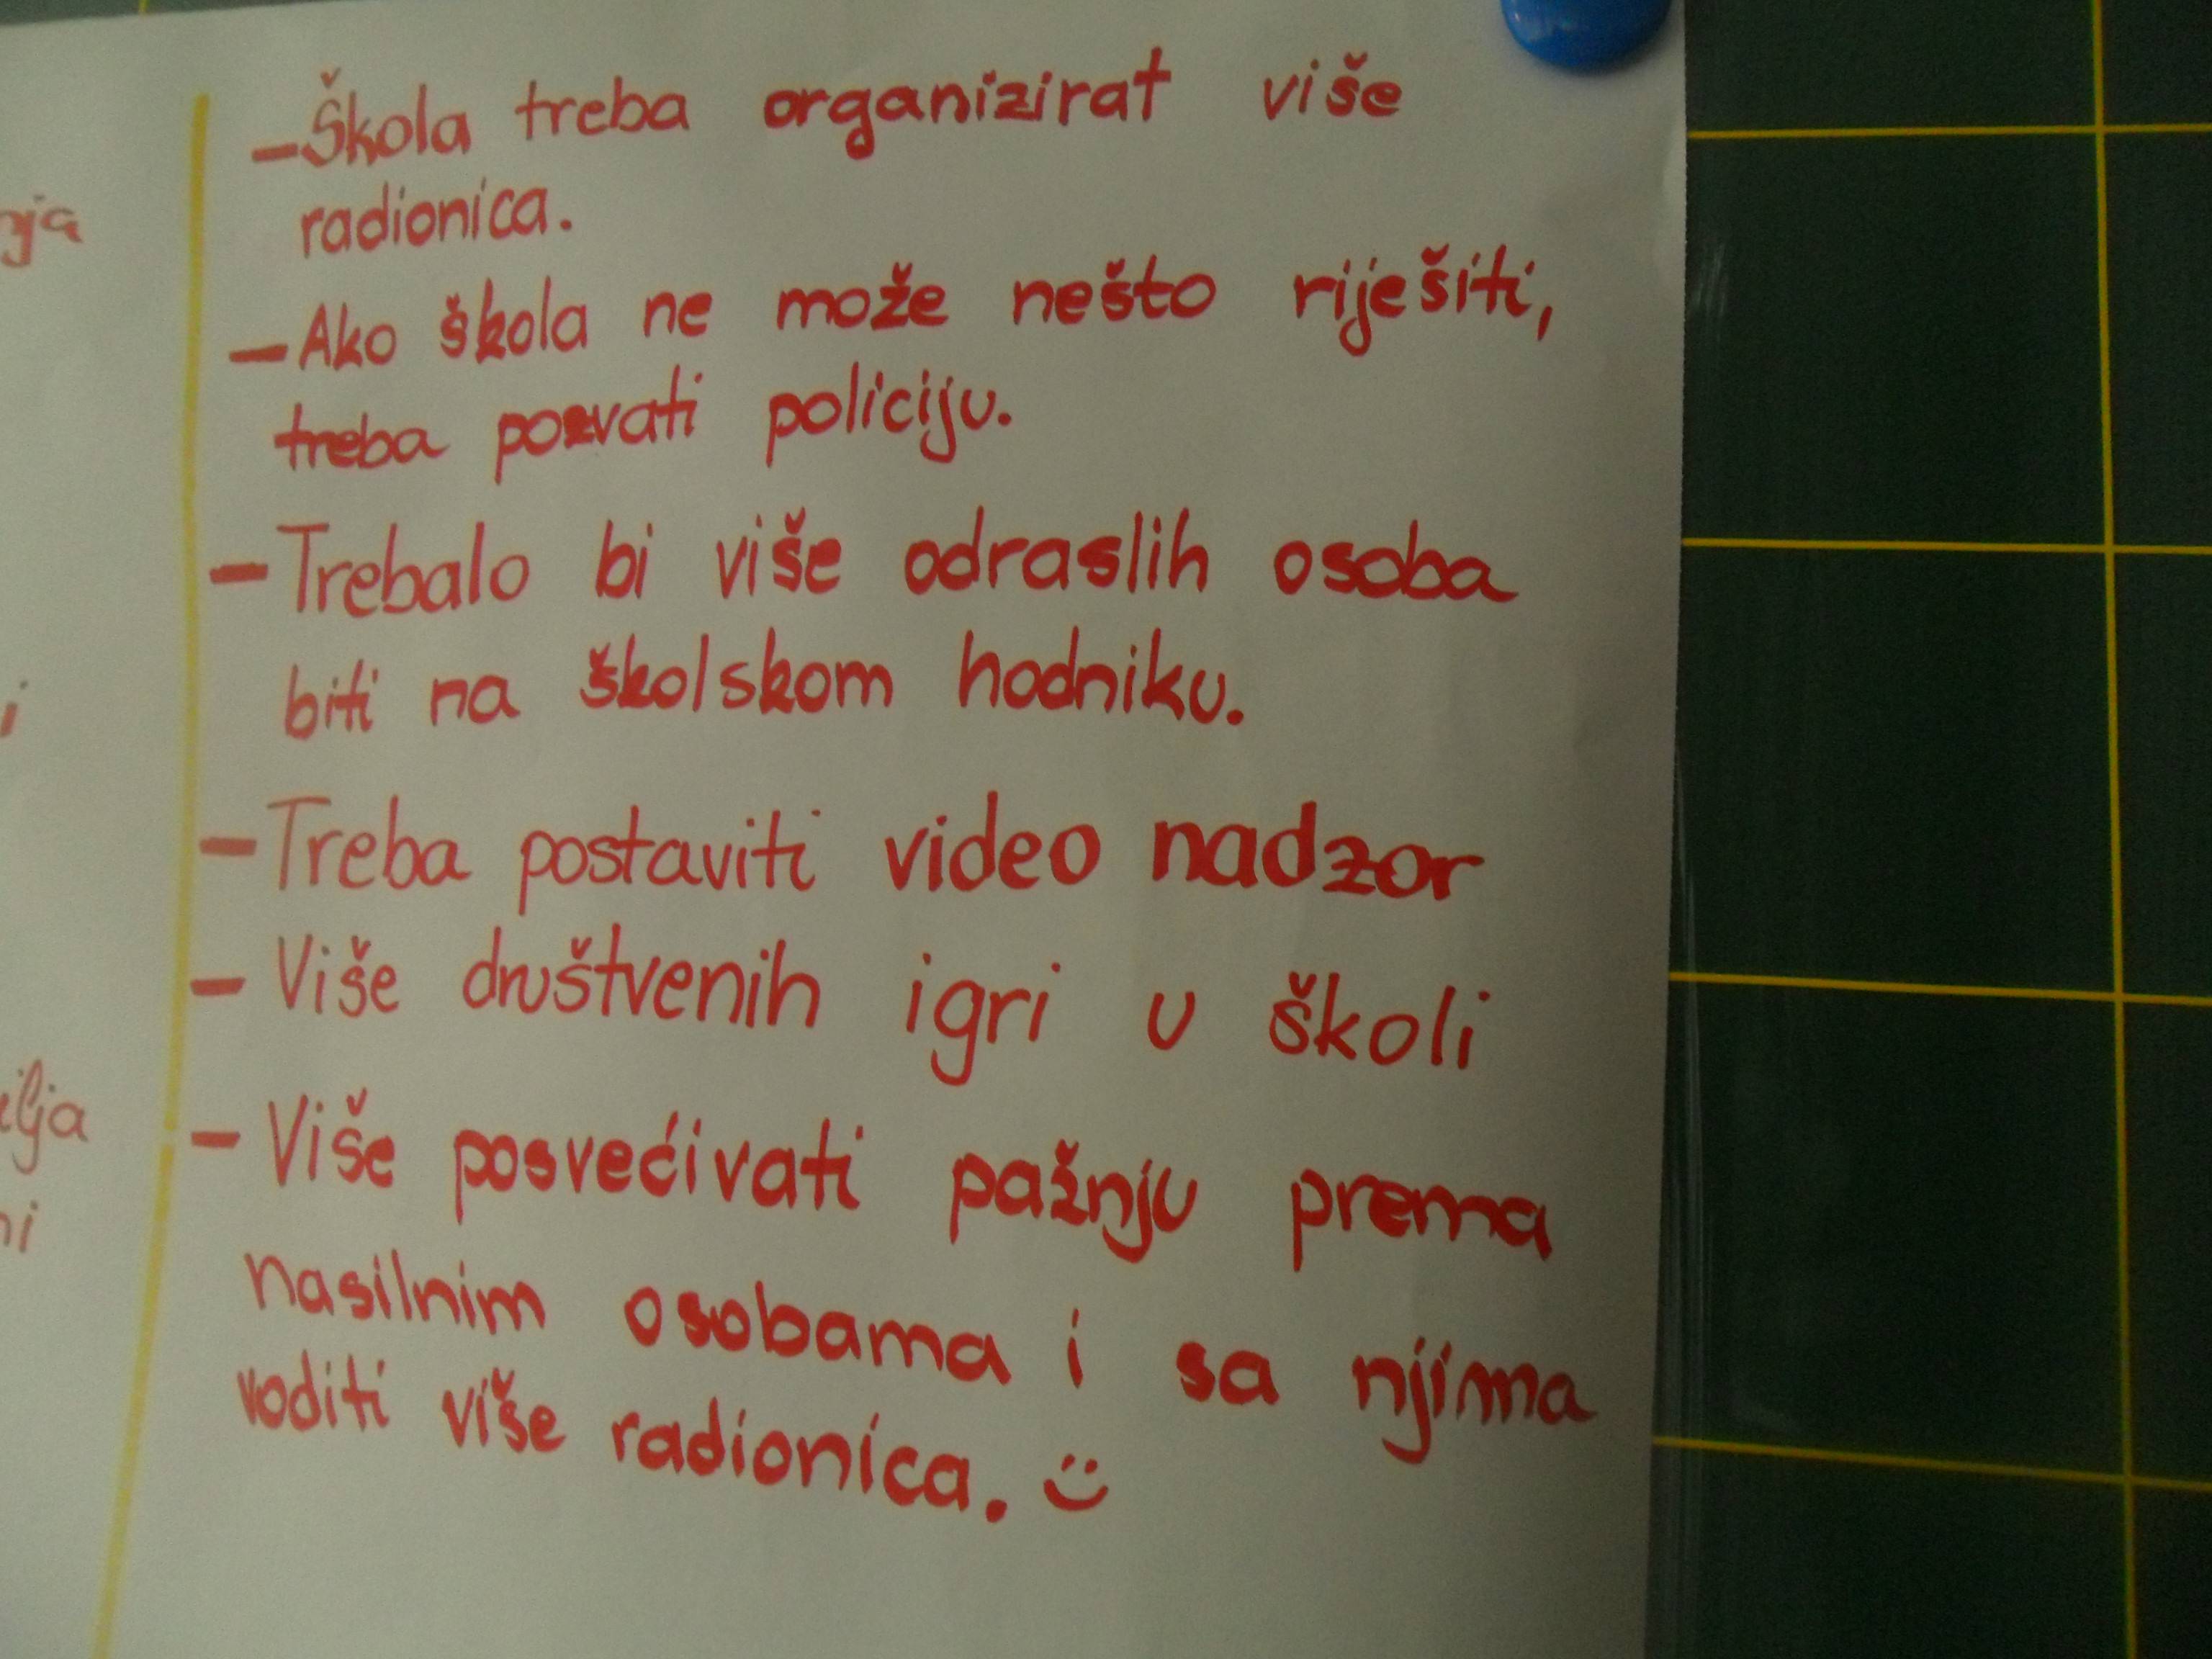 -Škola treba organizirat više
radionica.
-Ako škola ne može nešto riješiti,
treba pozvati policiju.
-Trebalo bi više odraslih osoba
biti na školskom hodniku.
-Treba postaviti video nadzor
- Više društvenih igri u školi
- Više posvećivati pažnju prema
nasilnim osobama i sa njima
voditi više radionica. :)